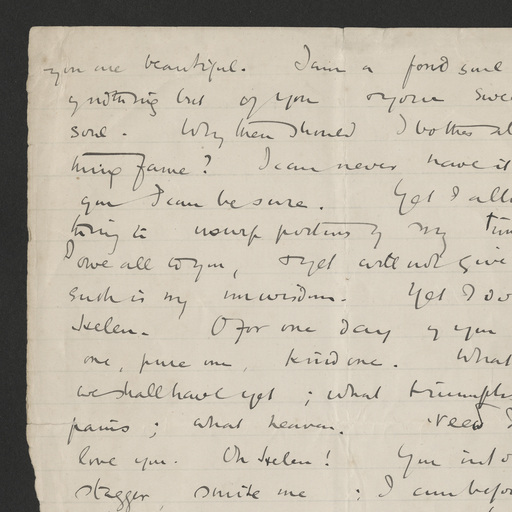 you are beautiful. I am a fond soul
of nothing but of you or your swe
soul. Why then should I bother ab
thing fame? I can never have it
you I can be sure. Yet I all
thing to usurp portions of my tim
I owe all to you, & yet will not give
such is my unwisdom. Yet I do
Helen. O for one day of you
one, pure one, kind one. What
we shall have yet; what triumphs
pains; what heaven. need I
love you. Oh Helen! You into
stagger, smite me : I am befo